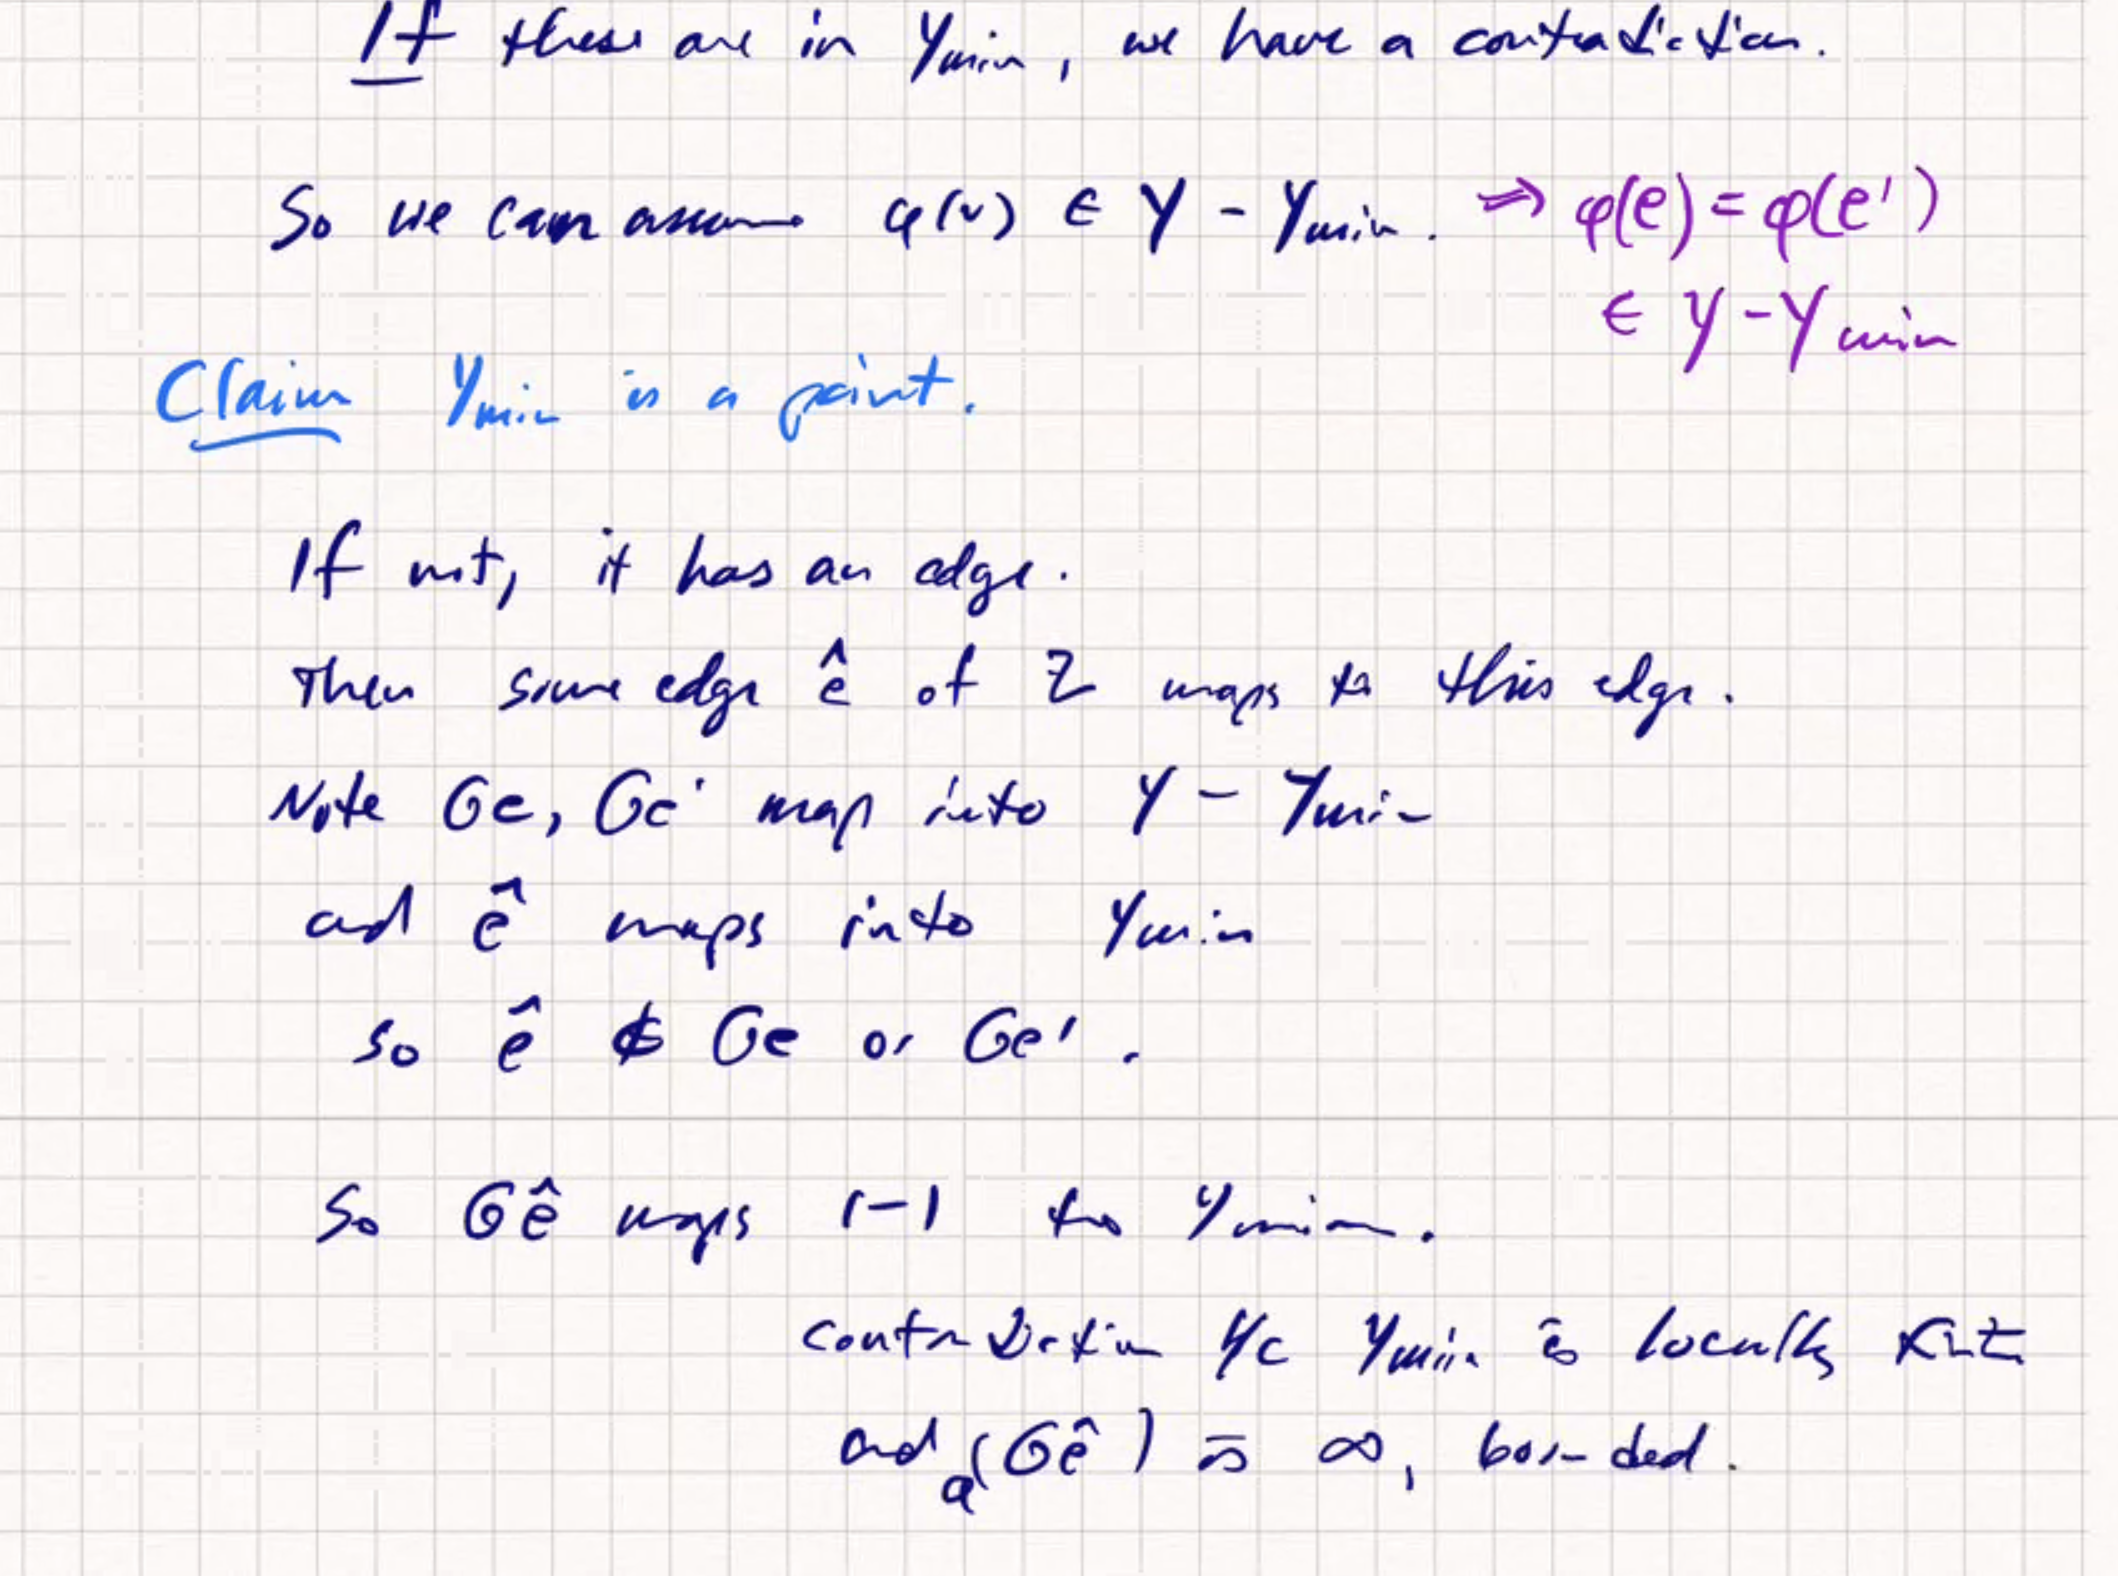 If these are in Y_min, we have a contradiction.
So we can assume φ(v) ∈ Y - Y_min. ⇒ φ(e) = φ(e')
∈ Y - Y_min
Claim Y_min is a point.
If not, it has an edge.
Then some edge ê of Z maps to this edge.
Note Ge, Ge' map into Y - Y_min
and ê maps into Y_min
so ê ∉ Ge or Ge'.
So Gê maps 1-1 to Y_min.
contradiction b/c Y_min is locally finite
and q(Gê) is ∞, bounded.